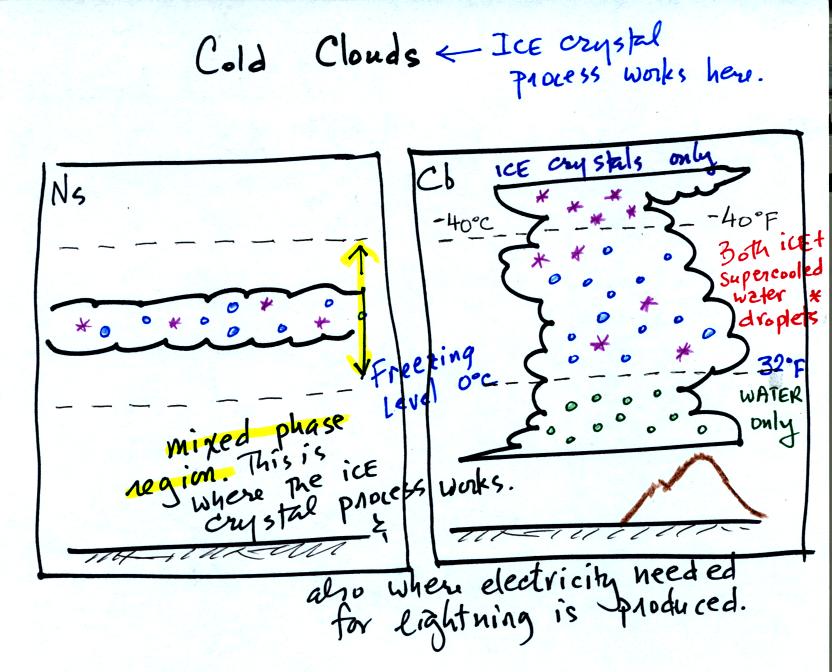 Cold Clouds ← ICE crystal
process works here.
Ns
Freezing
Level 0°C
mixed phase
region. This is
where the ice
crystal process works.
&
also where electricity needed
for lightning is produced.
Cb
ICE crystals only
-40°C
-40°F
Both ice +
supercooled
water *
droplets
32°F
WATER
only